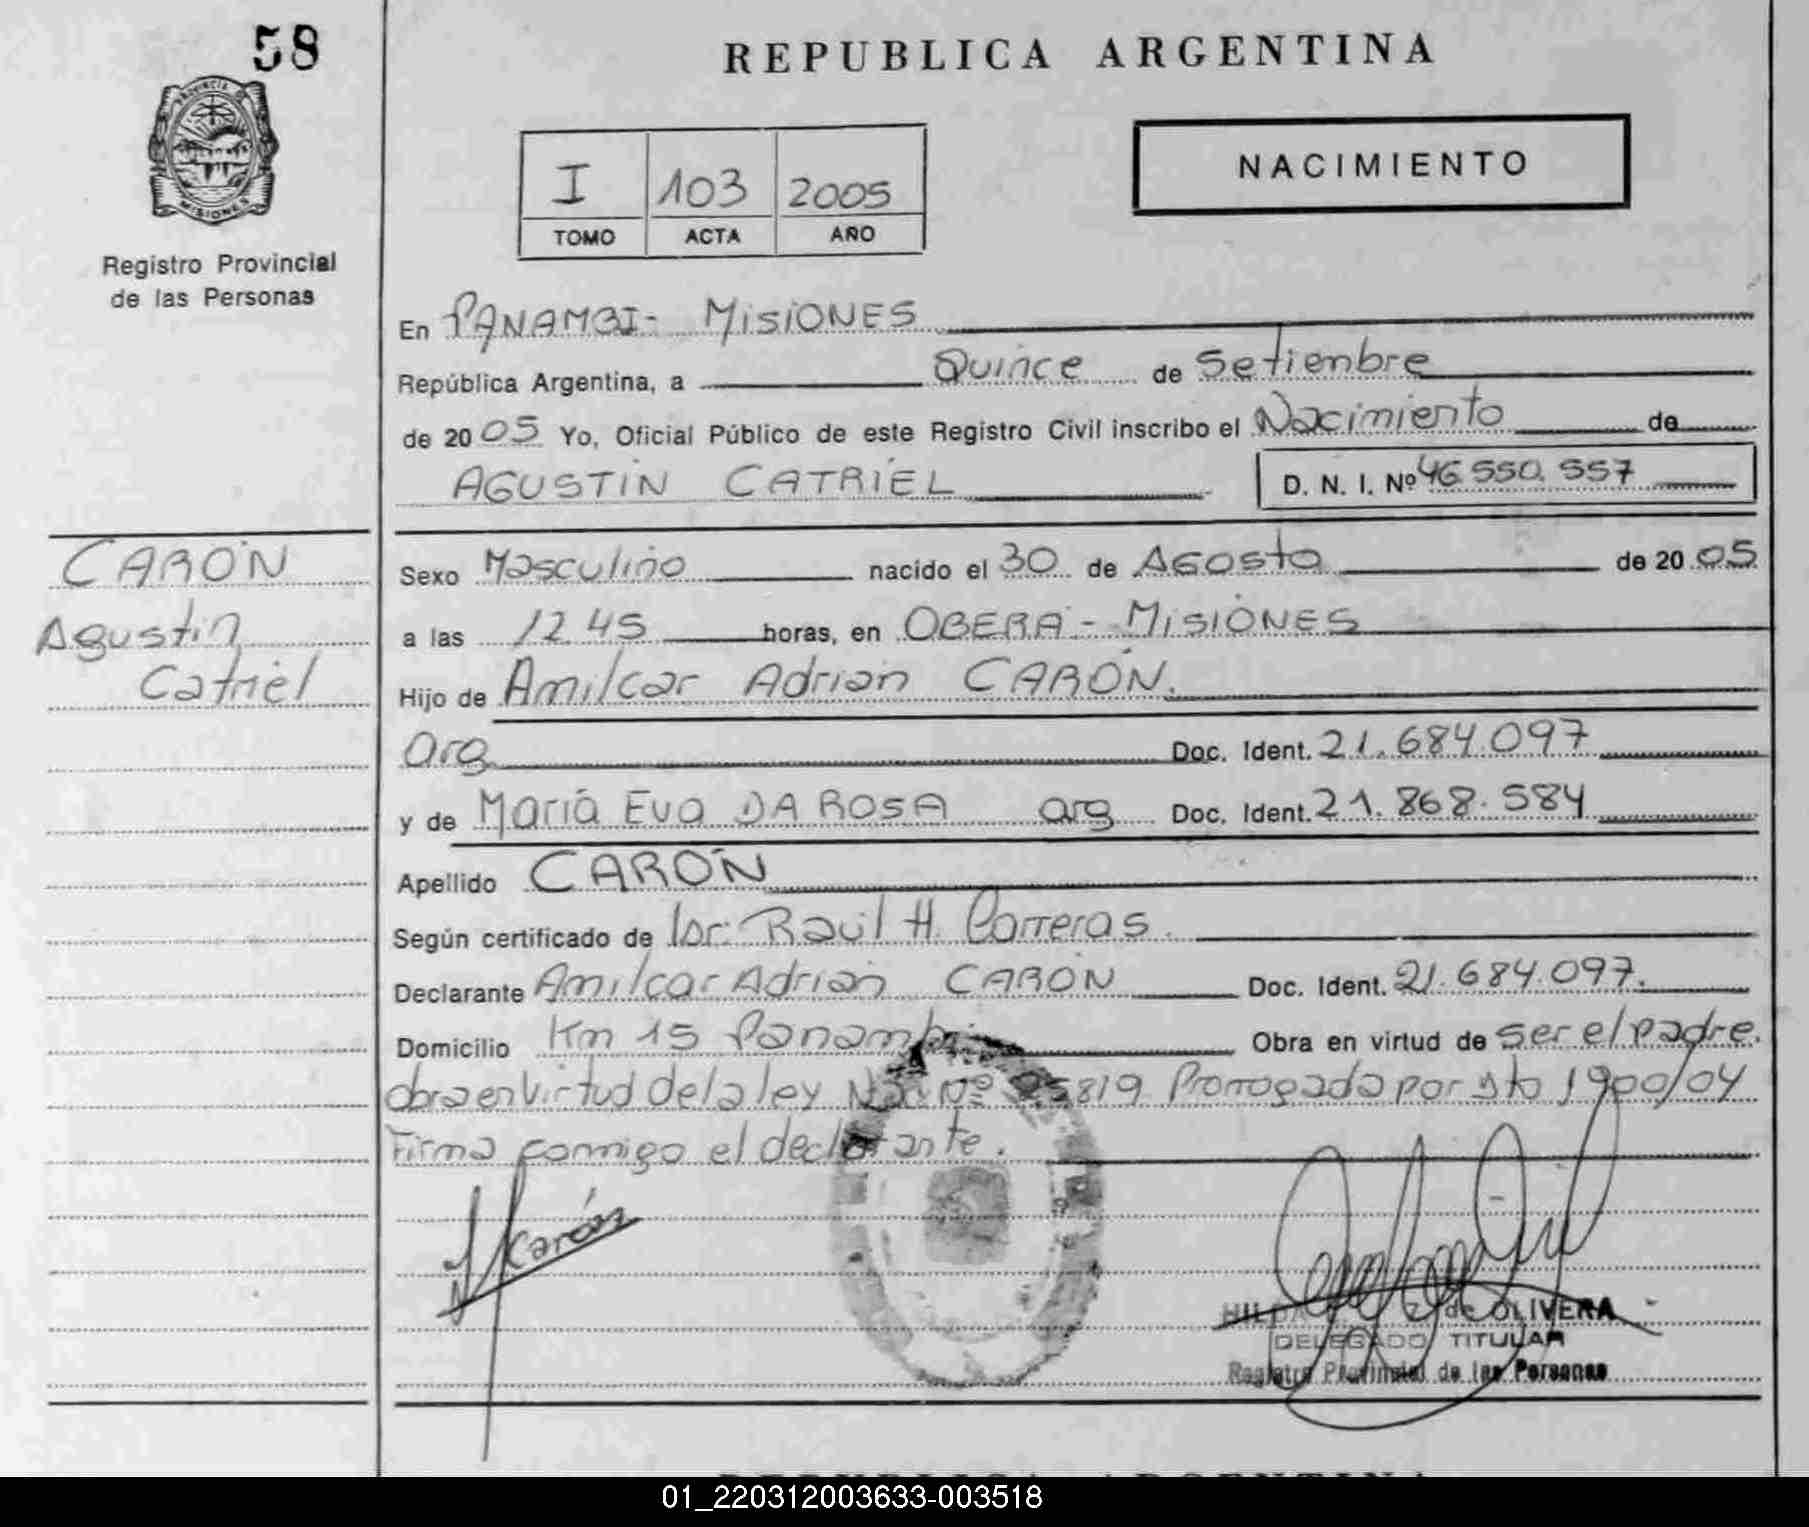 58
REPUBLICA ARGENTINA
PROVINCIA DE
MISIONES
Registro Provincial
de las Personas
I 103 2005
TOMO ACTA AÑO
NACIMIENTO
En PANAMBI- MISIONES
República Argentina, a Quince de Setiembre
de 2005 Yo, Oficial Público de este Registro Civil inscribo el Nacimiento de
AGUSTIN CATRIEL D. N. I. Nº 46.550.557
CARÓN
Agustin
Catriel
Sexo Masculino nacido el 30 de AGOSTO de 2005
a las 12 45 horas, en OBERA - MISIONES
Hijo de Amilcar Adrian CARÓN.
arg Doc. Ident. 21.684.097
y de Maria Eva DA ROSA arg Doc. Ident. 21.868.584
Apellido CARÓN
Según certificado de Raúl H. Carreras.
Declarante Amilcar Adrian CARÓN Doc. Ident. 21.684.097.
Domicilio Km 15 Panambi Obra en virtud de ser el padre.
obra en virtud de la ley Nac Nº 25819 Prorrogada por Dto 1900/04
Firma conmigo el declarante.
Carón
de OLIVERA
DELEGADO TITULAR
Registro Provincial de las Personas
REPUBLICA ARGENTINA
01_220312003633-003518